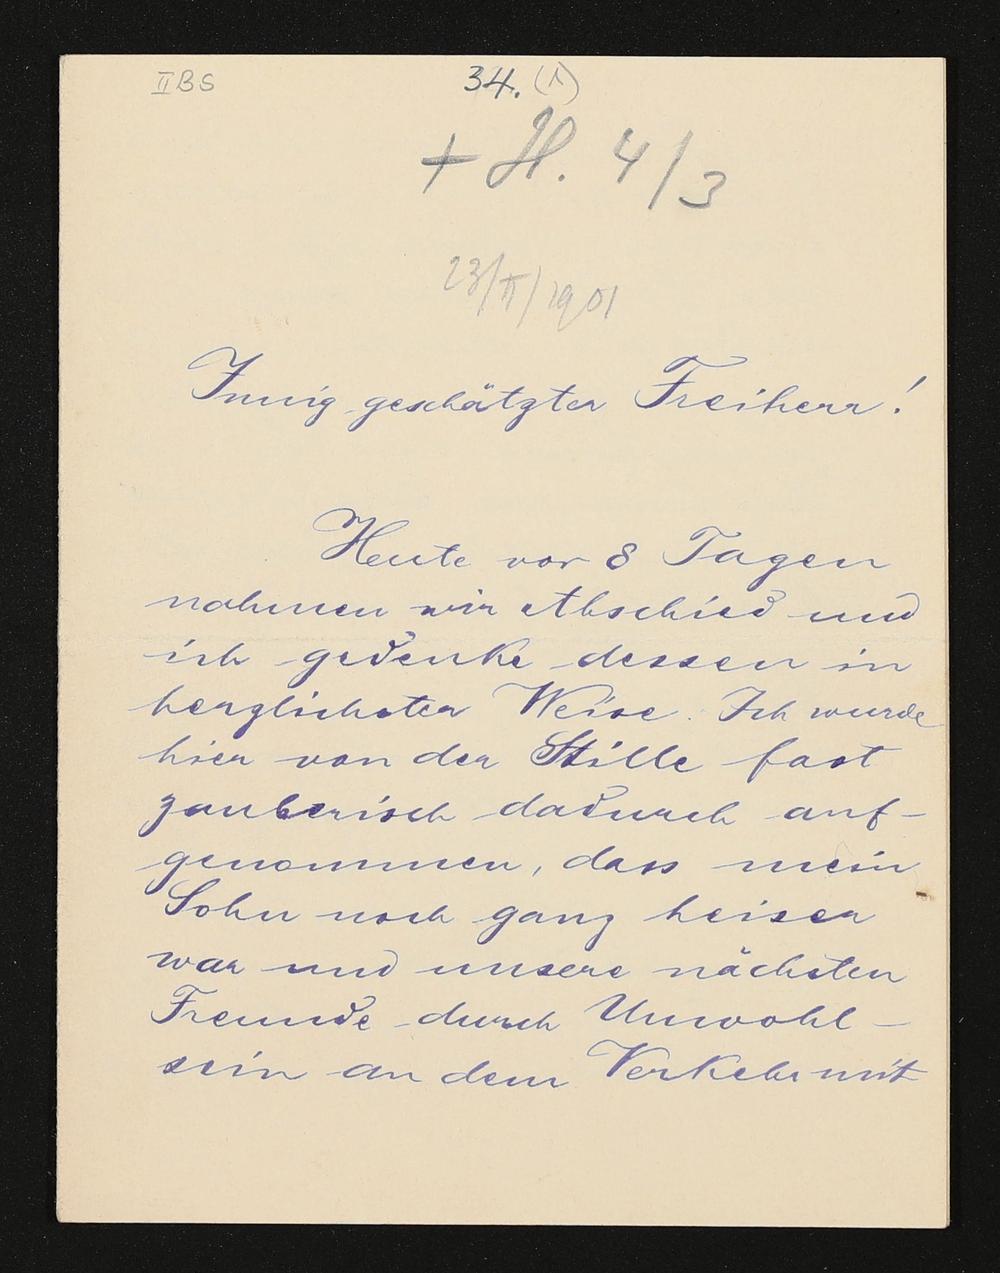 II B S
34. (1)
+ H. 4/3
23/II/1901
Innig geschätzter Freiherr!
Heute vor 8 Tagen
nahmen wir Abschied und
ich gedenke dessen in
herzlichster Weise. Ich wurde
hier von der Stille fast
zauberisch dadurch auf-
genommen, dass mein
Sohn noch ganz heiser
war und unsere nächsten
Freunde durch Unwohl-
sein an dem Verkehr mit